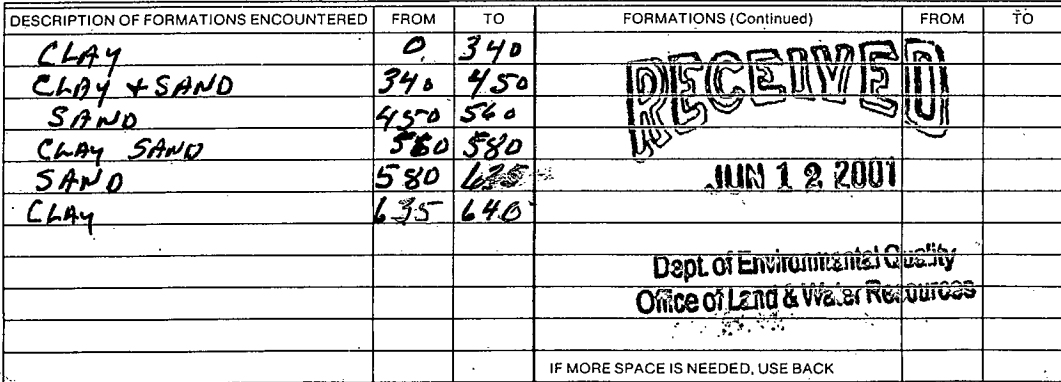 DESCRIPTION OF FORMATIONS ENCOUNTERED FROM TO FORMATIONS (Continued) FROM TO
CLAY 0 340
CLAY + SAND 340 450
SAND 450 560
CLAY SAND 560 580
SAND 580 635
CLAY 635 640
RECEIVED
JUN 12 2001
Dept. of Environmental Quality
Office of Land & Water Resources
IF MORE SPACE IS NEEDED, USE BACK